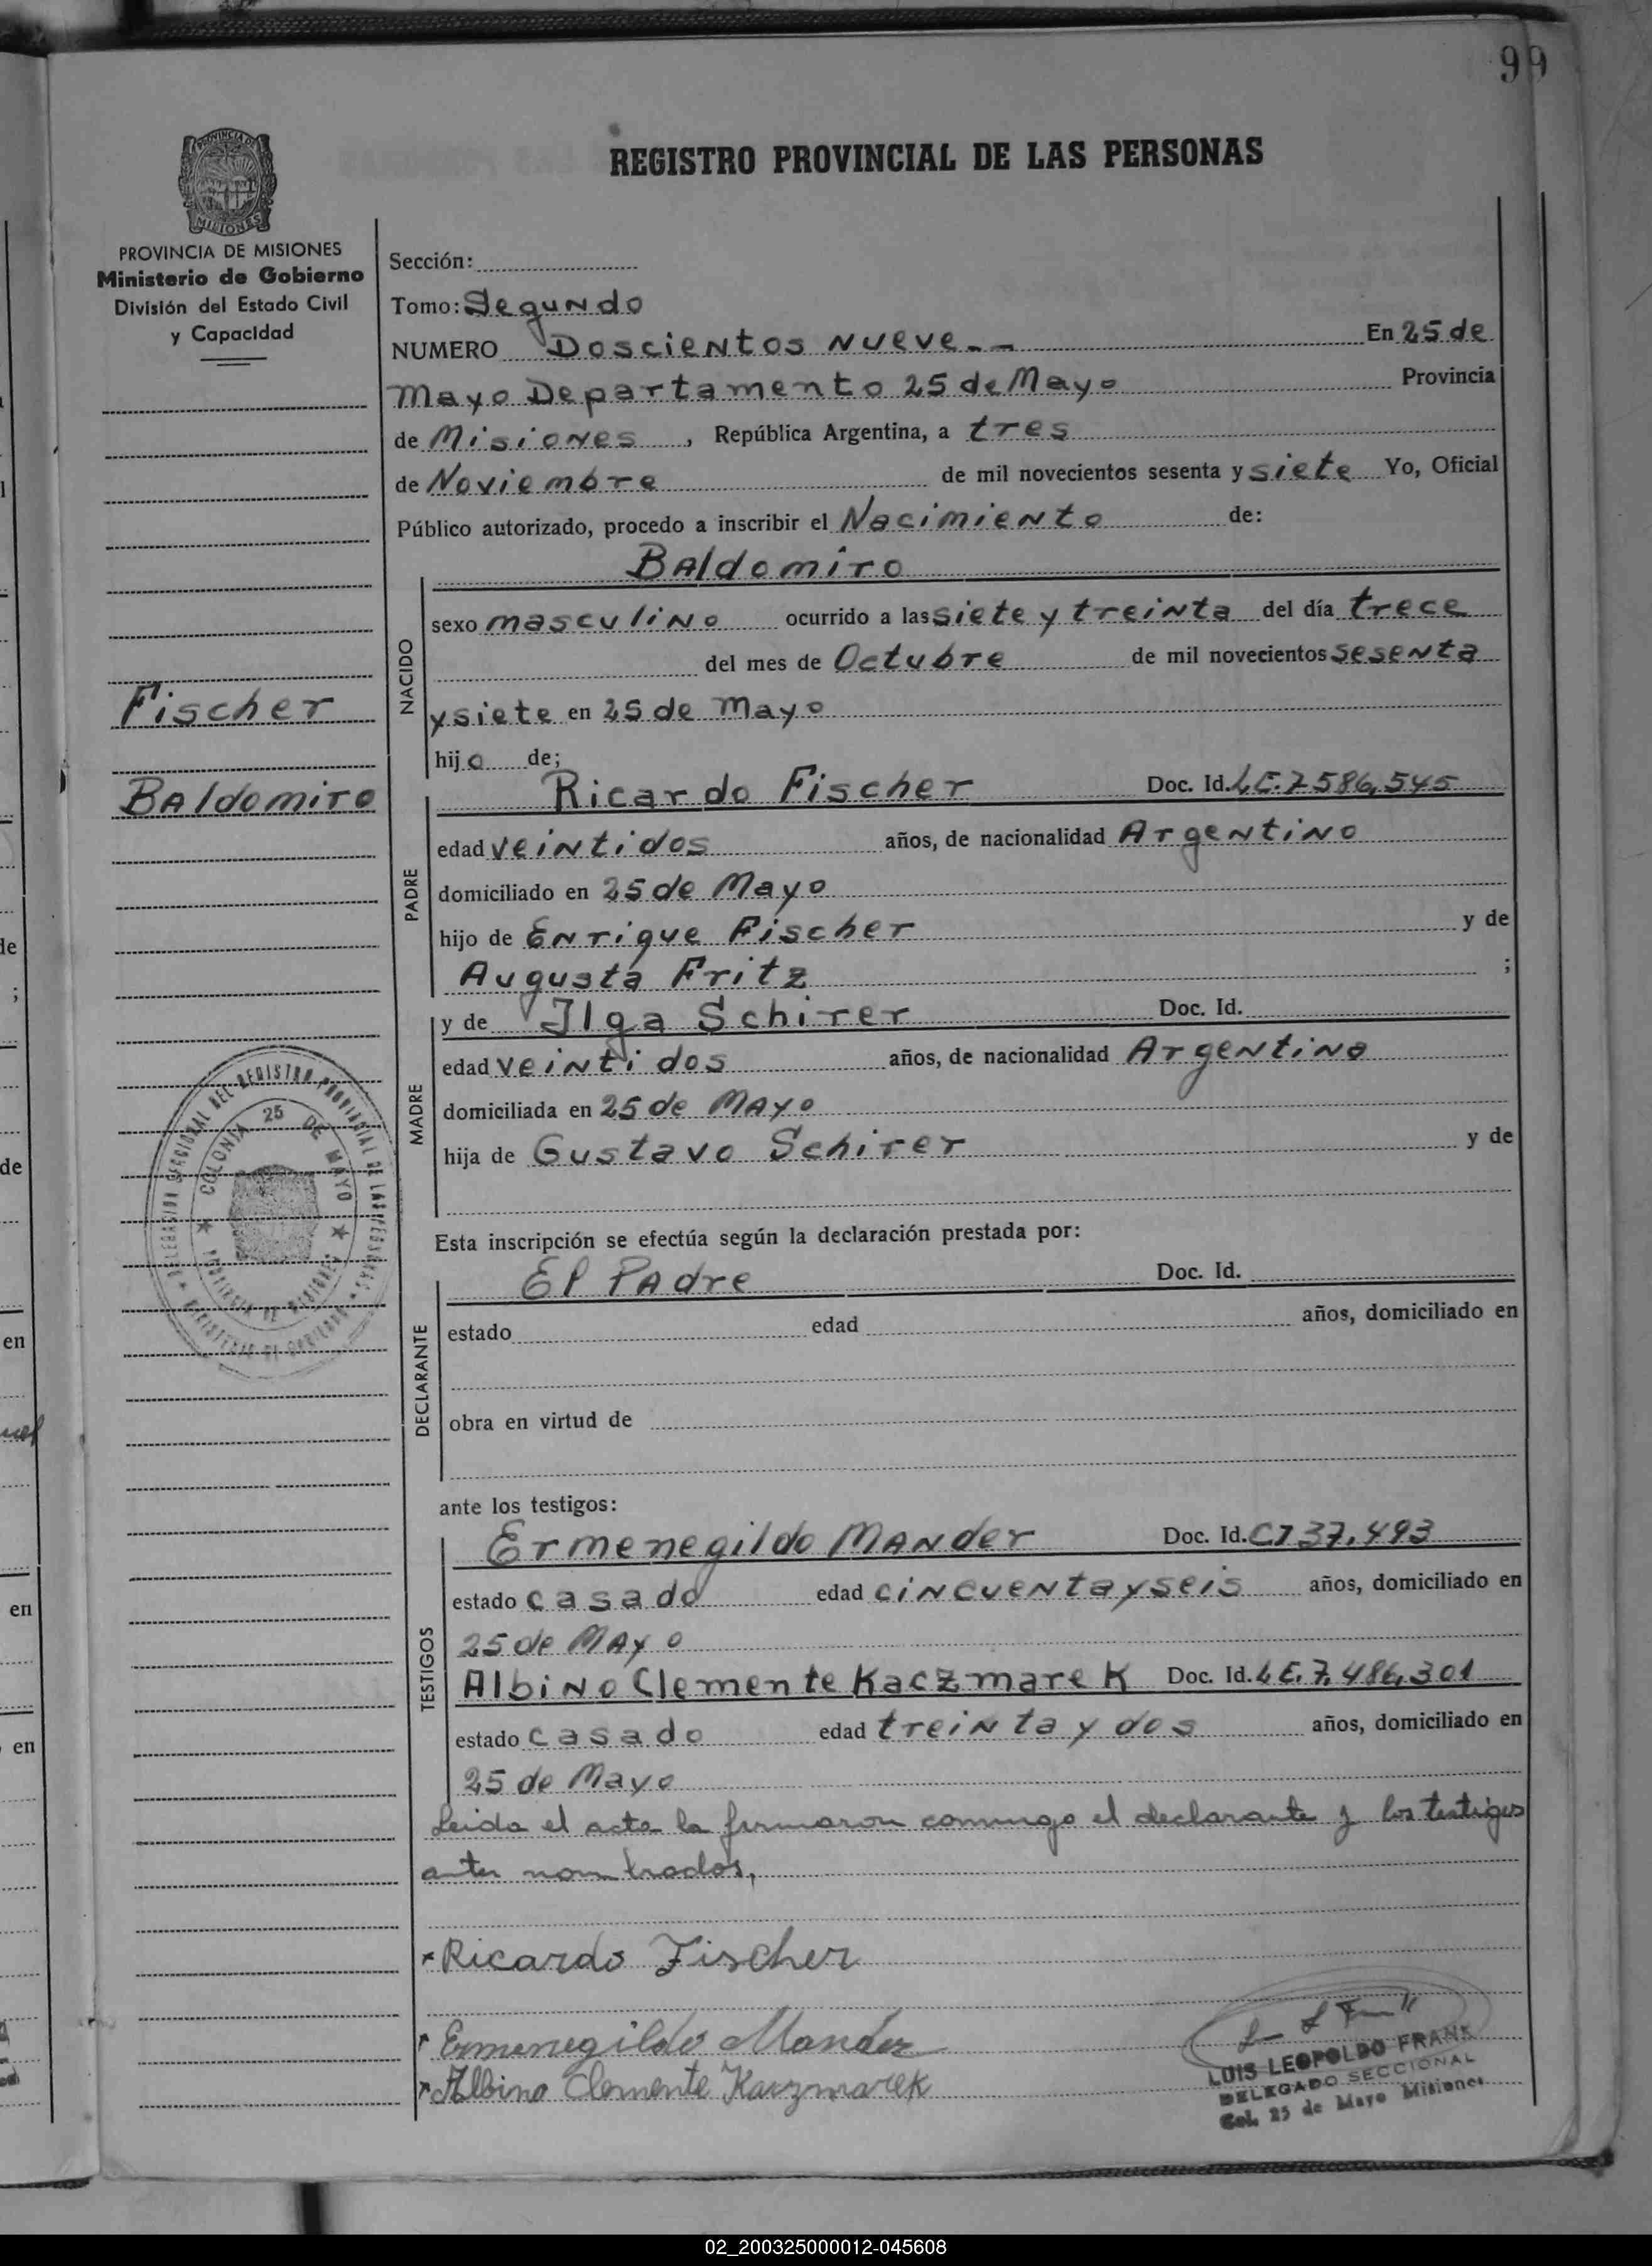 99
REGISTRO PROVINCIAL DE LAS PERSONAS
PROVINCIA DE MISIONES
MISIONES
PROVINCIA DE MISIONES
Ministerio de Gobierno
División del Estado Civil
y Capacidad
Fischer
Baldomiro
Sección:
Tomo: Segundo
NUMERO Doscientos Nueve-- En 25 de
Mayo Departamento 25 de Mayo Provincia
de Misiones, República Argentina, a tres
de Noviembre de mil novecientos sesenta y siete Yo, Oficial
Público autorizado, procedo a inscribir el Nacimiento de:
Baldomiro
NACIDO
sexo masculino ocurrido a las siete y treinta del día trece
del mes de Octubre de mil novecientos sesenta
y siete en 25 de Mayo
hijo de;
PADRE
Ricardo Fischer Doc. Id. L.E. 7586,545
edad veintidos años, de nacionalidad Argentino
domiciliado en 25 de Mayo
hijo de Enrique Fischer y de
Augusta Fritz ;
MADRE
y de Ilga Schirer Doc. Id.
edad veintidos años, de nacionalidad Argentina
domiciliada en 25 de Mayo
hija de Gustavo Schirer y de
Esta inscripción se efectúa según la declaración prestada por:
DECLARANTE
El Padre Doc. Id.
estado edad años, domiciliado en
obra en virtud de
ante los testigos:
TESTIGOS
Ermenegildo Mander Doc. Id. CI 37,493
estado casado edad cincuenta y seis años, domiciliado en
25 de Mayo
Albino Clemente Kaczmarek Doc. Id. L.E. 7,486,301
estado casado edad treinta y dos años, domiciliado en
25 de Mayo
Leida el acta la firmaron conmigo el declarante y los testigos
antes nombrados,
Ricardo Fischer
Ermenegildo Mander
Albino Clemente Kaczmarek
LUIS LEOPOLDO FRANK
DELEGADO SECCIONAL
Col. 25 de Mayo Misiones
DELEGACION SECCIONAL DEL REGISTRO PROVINCIAL DE LAS PERSONAS
COLONIA 25 DE MAYO
PROVINCIA DE MISIONES
MINISTERIO DE GOBIERNO
02_200325000012-045608